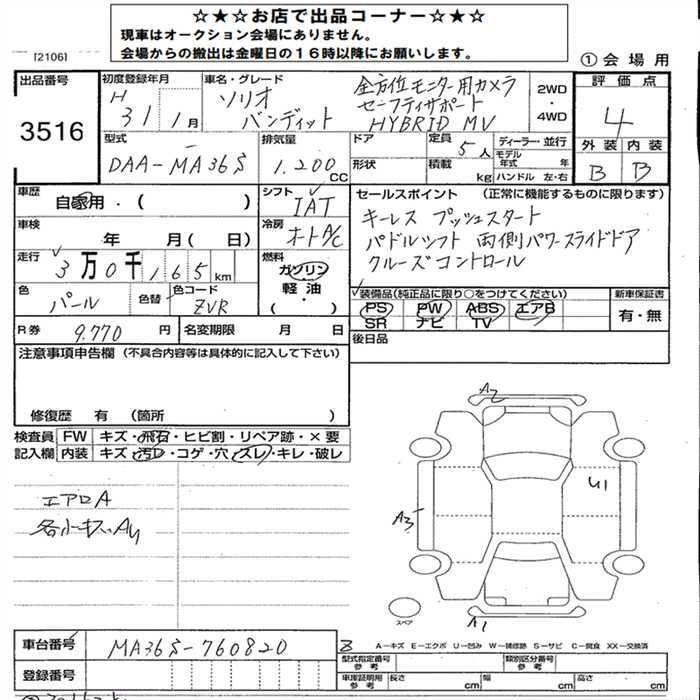 ☆★☆お店で出品コーナー☆★☆
現車はオークション会場にありません。
会場からの搬出は金曜日の１６時以降にお願いします。
[2106]
① 会場用
出品番号
3516
初度登録年月
H 31 1月
車名・グレード
ソリオ
バンディット
全方位モニター用カメラ
セーフティサポート
HYBRID MV
2WD
・
4WD
評価点
4
外装 内装
B B
型式
DAA-MA36S
排気量
1.200 CC
ドア
形状
定員
5人
積載
kg
ディーラー・並行
モデル年式 年
ハンドル 左・右
車歴
自家用・( )
シフト
IAT
セールスポイント (正常に機能するものに限ります)
キーレス プッシュスタート
パドルシフト 両側パワースライドドア
クルーズコントロール
車検
年 月( 日)
冷房
オートA/C
走行
3万0千165km
燃料
ガソリン
・
軽油
( )
色
パール
色替
色コード
ZVR
装備品(純正品に限り○をつけてください)
PS PW ABS エアB
SR ナビ TV
新車保証書
有・無
R券
9.770 円
名変期限 月 日
後日品
注意事項申告欄 (不具合内容等は具体的に記入して下さい)
修復歴 有 (箇所 )
検査員記入欄
FW キズ・飛石・ヒビ割・リペア跡・×要
内装 キズ・汚レ・コゲ・穴・スレ・キレ・破レ
エアロA
各小キズAU
A2
U1
A3
スペア
A1
車台番号
MA36S-760820
登録番号
A－キズ E－エクボ U－凹み W－補修跡 S－サビ C－腐食 XX－交換済
型式指定番号 参考
類別区分番号 参考
車庫証明用 参考
長さ cm 幅 cm 高さ cm